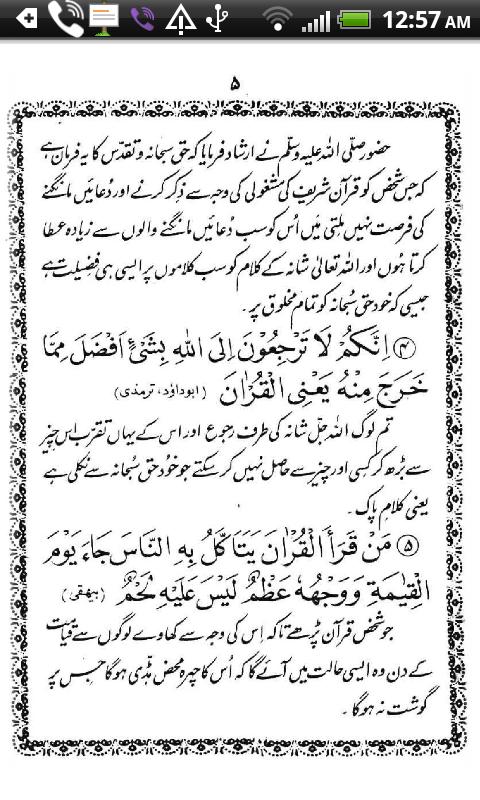 12:57 AM
۵
حضور صلّی اللہ علیہ وسلّم نے ارشاد فرمایا کہ حق سبحانہ و تقدّس کا یہ فرمان ہے
کہ جس شخص کو قرآن شریف کی مشغولی کی وجہ سے ذکر کرنے اور دُعائیں مانگنے
کی فرصت نہیں ملتی میں اُس کو سب دُعائیں مانگنے والوں سے زیادہ عطا
کرتا ہُوں اور اللہ تعالیٰ شانہ کے کلام کو سب کلاموں پر ایسی ہی فضیلت ہے
جیسی کہ خود حق سُبحانہ کو تمام مخلوق پر۔
۴ اِنَّكُمْ لَا تَرْجِعُوْنَ اِلَى اللّٰهِ بِشَىْءٍ اَفْضَلَ مِمَّا
خَرَجَ مِنْهُ يَعْنِى الْقُرْاٰنَ (ابوداؤد، ترمذی)
تم لوگ اللہ جلّ شانہ کی طرف رجوع اور اس کے یہاں تقرّب اس چیز
سے بڑھ کر کسی اور چیز سے حاصل نہیں کر سکتے جو خُود حق سُبحانہ سے نکلی ہے
یعنی کلامِ پاک۔
۵ مَنْ قَرَأَ الْقُرْاٰنَ يَتَاَكَّلُ بِهِ النَّاسَ جَاءَ يَوْمَ
الْقِيٰمَةِ وَوَجْهُهٗ عَظْمٌ لَيْسَ عَلَيْهِ لَحْمٌ (بیہقی)
جو شخص قرآن پڑھے تاکہ اس کی وجہ سے کھاوے لوگوں سے قیامت
کے دن وہ ایسی حالت میں آئے گا کہ اُس کا چہرہ محض ہڈی ہوگا جس پر
گوشت نہ ہوگا۔